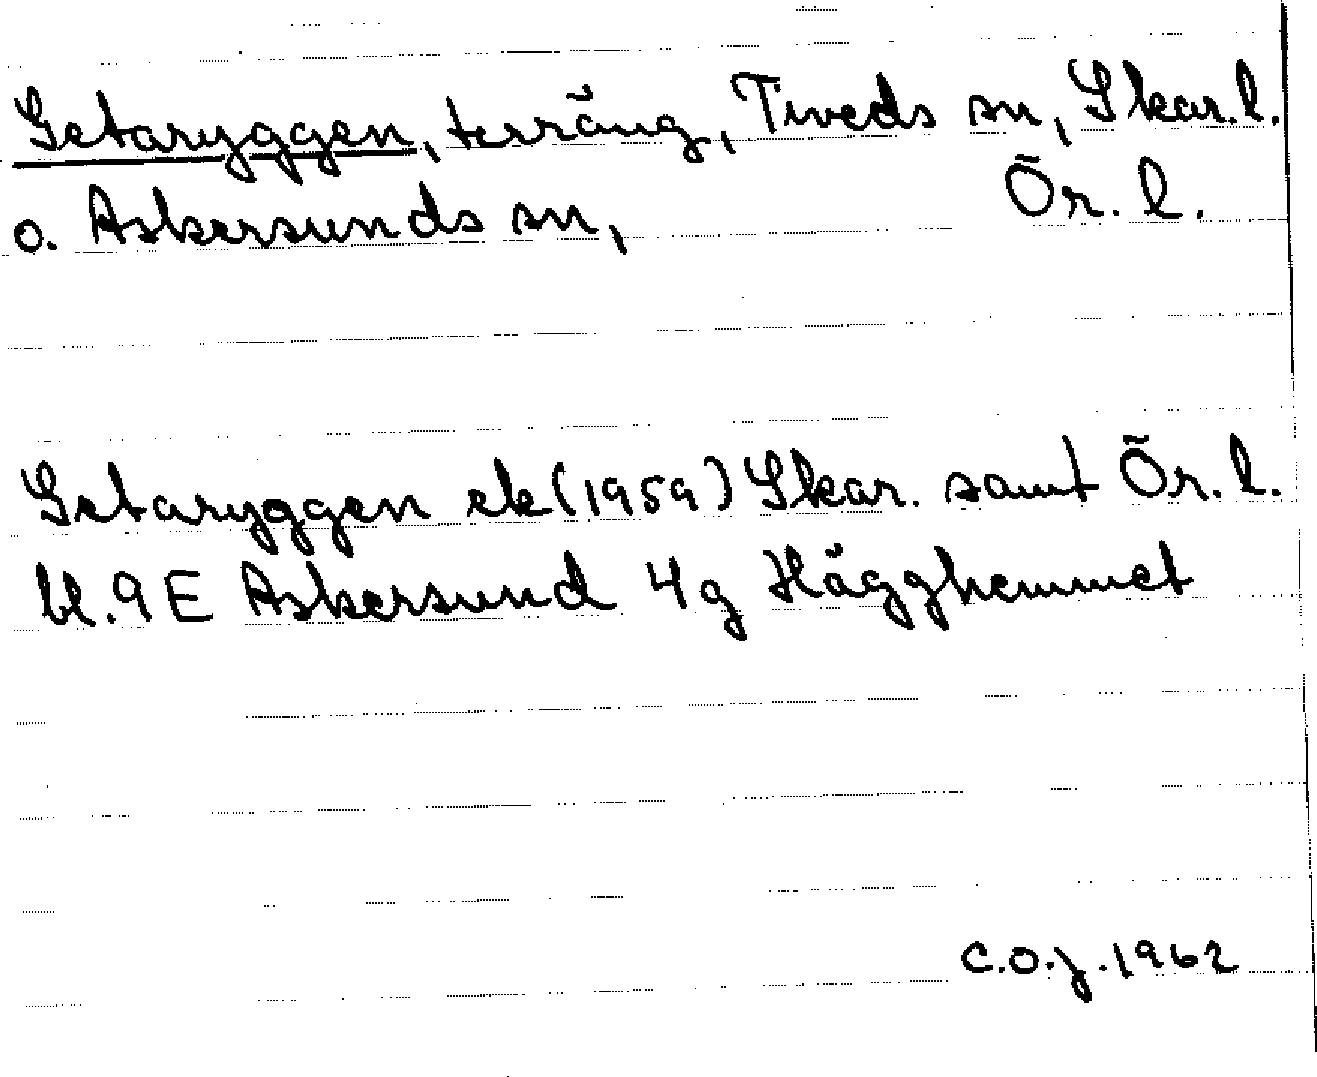 Getaryggen, terräng, Tiveds sn, Skar. l.
o. Askersunds sn, Ör. l.
Getaryggen ek (1959) Skar. samt Ör. l.
bl. 9 E Askersund 4g Hägghemmet
C.O.J. 1962